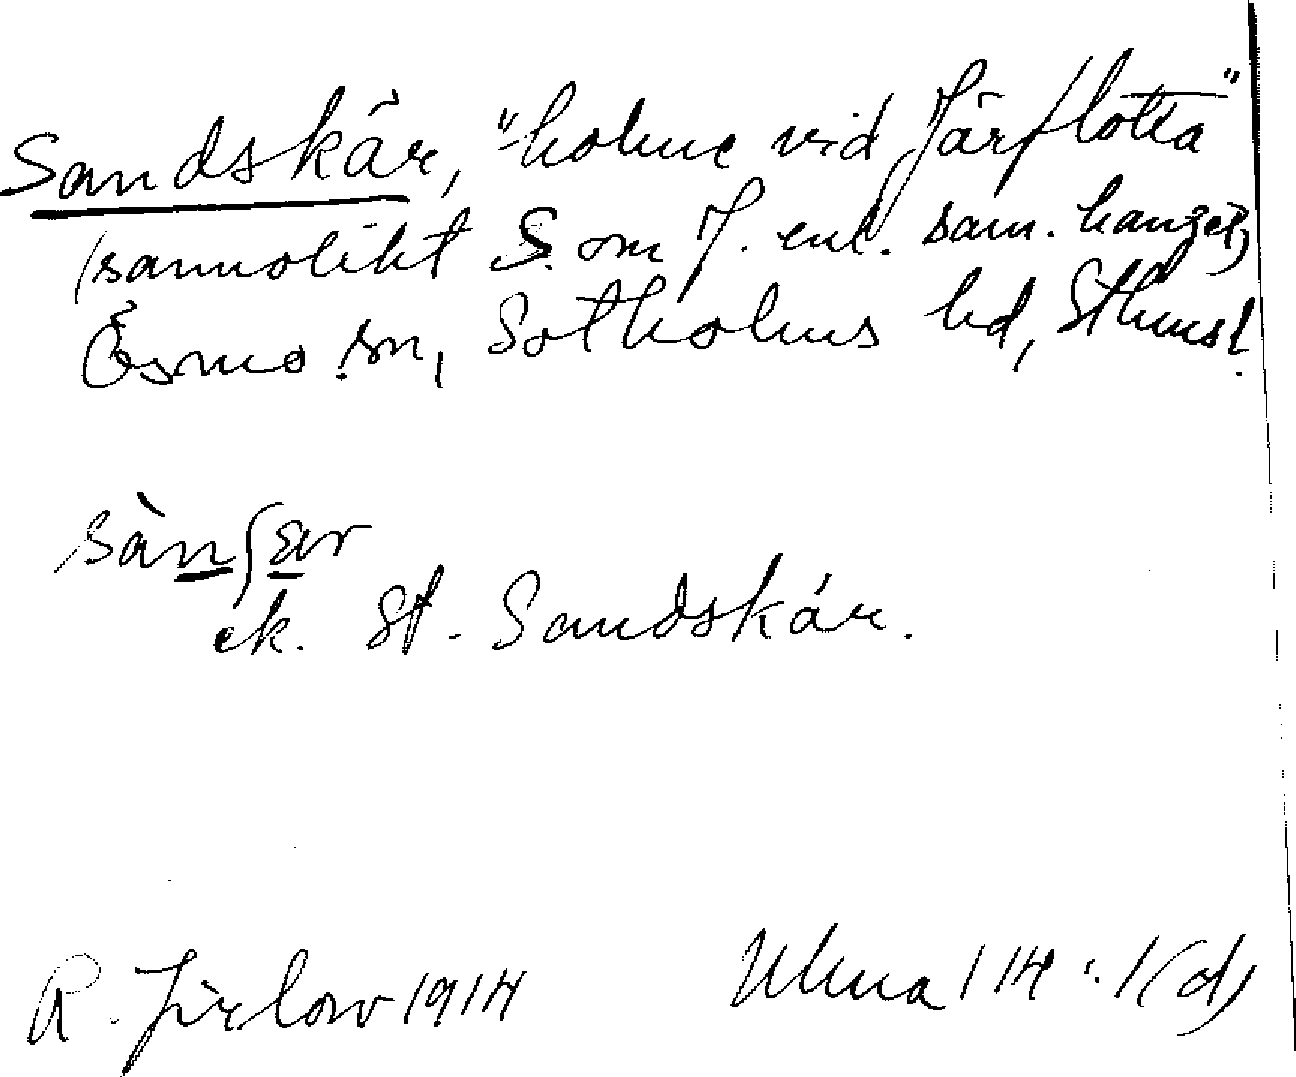 Sandskär, "holme vid Järflotta"
(sannolikt S. om J. enl. sam. hanget),
Ösmo sn, Sotholms hd, Sthms l.
sànʃær
ek. St. Sandskär.
R. Jirlow 1914
Ulma 114:1(d)